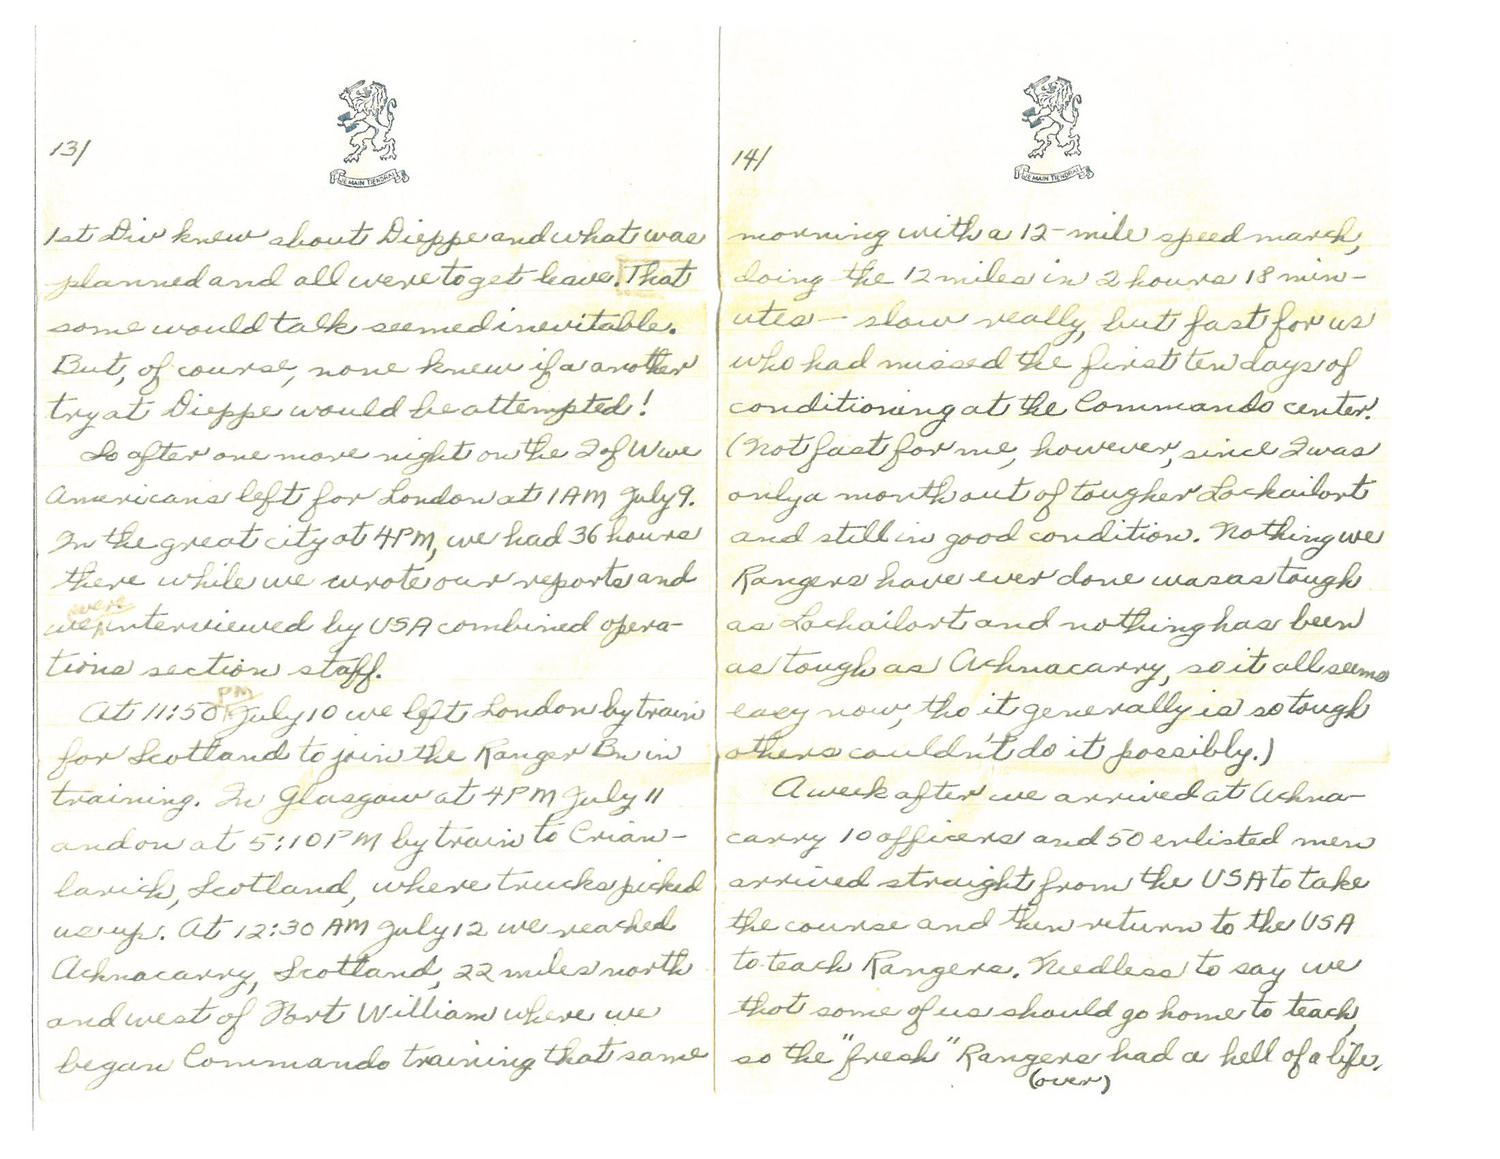 13/
JE MAIN TIENDRAI
1st Div knew about Dieppe and what was
planned and all were to get leave. That
some would talk seemed inevitable.
But, of course, none knew if a another
try at Dieppe would be attempted!
So after one more night on the I of W we
Americans left for London at 1AM July 9.
In the great city at 4PM, we had 36 hours
there while we wrote our reports and
were
we interviewed by USA combined opera-
tions section staff.
PM
At 11:50 July 10 we left London by train
for Scotland to join the Ranger Bn in
training. In Glasgow at 4PM July 11
and on at 5:10PM by train to Crian-
larich, Scotland, where trucks picked
us up. At 12:30 AM July 12 we reached
Achnacarry, Scotland, 22 miles north
and west of Fort William where we
began Commando training that same
14/
JE MAIN TIENDRAI
morning with a 12-mile speed march,
doing the 12 miles in 2 hours 18 min-
utes - slow really, but fast for us
who had missed the first ten days of
conditioning at the Commando center.
(Not fast for me, however, since I was
only a month out of tougher Lochailort
and still in good condition. Nothing we
Rangers have ever done was as tough
as Lochailort and nothing has been
as tough as Achnacarry, so it all seems
easy now, tho it generally is so tough
others couldn't do it possibly.)
A week after we arrived at Achna-
carry 10 officers and 50 enlisted men
arrived straight from the USA to take
the course and then return to the USA
to teach Rangers. Needless to say we
thot some of us should go home to teach,
so the "fresh" Rangers had a hell of a life.
(over)